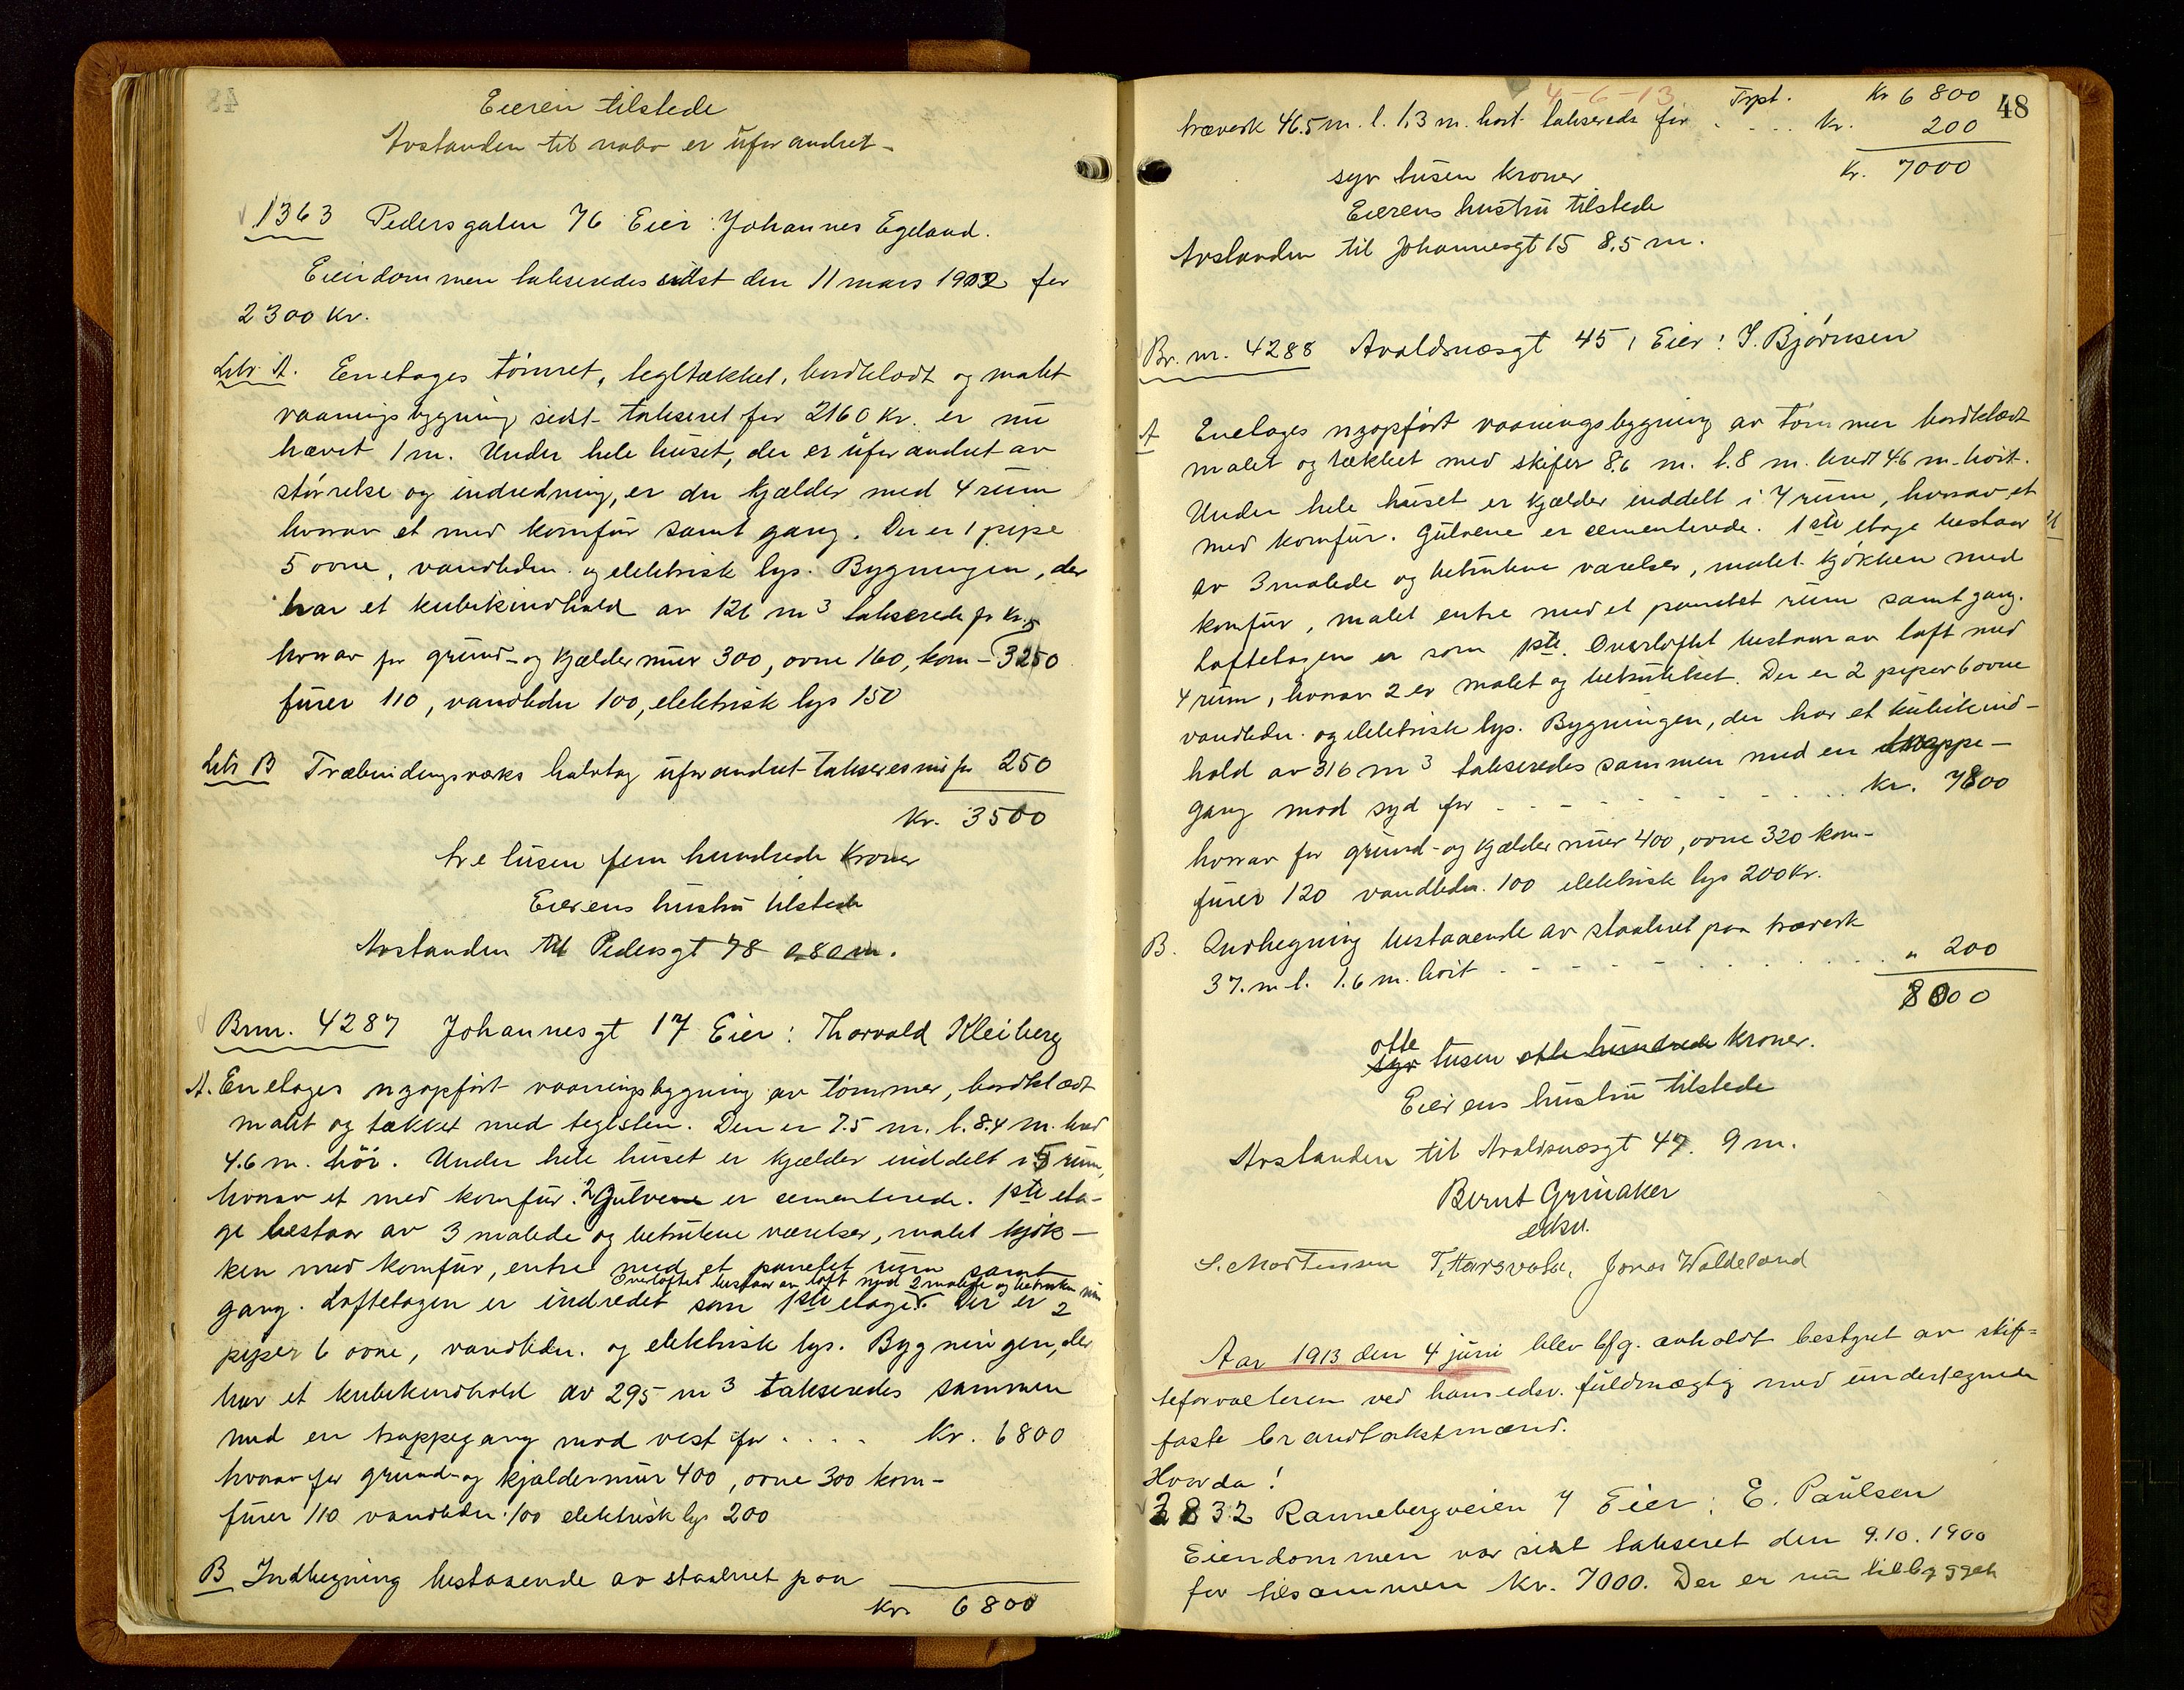 Eieren tilstede
Avstanden til nabo er uforandret -
1363 Pedersgaten 76 Eier: Johannes Egeland.
Eiendommen takseredes sidst den 11 mars 1902 for
2300 Kr.
Litr A. Enetages tömret, tegltækket, bordklædt og malet
vaaningsbygning sidst takseret for 2160 Kr. er nu
hævet 1 m. Under hele huset, der er uforandret av
störrelse og indredning, er der kjælder med 4 rum
hvorav et med komfur samt gang. Der er 1 pipe
5 ovne, vandledn. og elektrisk lys. Bygningen, der
har et kubikindhold av 121 m³ takseredes for Kr.
hvorav for grund- og kjældermur 300, ovne 160, kom- 3250
furer 110, vandledn 100, elektrisk lys 150
Litr B Træbindingsværks halvtag uforandret takseres nu for 250
Kr. 3500
tre tusen fem hundrede kroner
Eierens hustru tilstede
Avstanden til Pedersgt 78 0.80 m.
Brnr. 4287 Johannesgt 17 Eier: Thorvald Kleiberg
A. Enetages nyopfört vaaningsbygning av tömmer, bordklædt
malet og tækket med teglsten. Den er 7.5 m. l. 8.4 m. bred
4.6 m. höi. Under hele huset er kjælder inddelt i 5 rum,
hvorav et med komfur. 2 Gulvene er cementerede. 1ste eta-
ge bestaar av 3 malede og betrukne værelser, malet kjök-
ken med komfur, entre med et panelet rum samt
Overloftet bestaar av loft med 2 malede og betrukne rum
gang. Loftetagen er indredet som 1ste etage. Der er 2
piper 6 ovne, vandledn. og elektrisk lys. Bygningen, der
har et kubikindhold av 295 m³ takseredes sammen
med en trappegang mod vest for .... Kr. 6800
hvorav for grund- og kjældermur 400, ovne 300 kom-
furer 110 vandledn. 100 elektrisk lys 200
B Indhegning bestaaende av staalnet paa
Kr 6800
48
4-6-13
Trpt. Kr 6800
træverk 46.5 m. l. 1,3 m. höit takseredes for .... Kr. 200
Kr. 7000
syv tusen kroner
Eierens hustru tilstede
Avstanden til Johannesgt 15 8,5 m.
Br. nr. 4288 Avaldsnæsgt 45, Eier: I. Björnsen
A Enetages nyopfört vaaningsbygning av tömmer bordklædt
malet og tækket med skifer 8.6 m. l. 8 m. bredt 4.6 m. höit.
Under hele huset er kjælder inddelt i 7 rum, hvorav et
med komfur. Gulvene er cementerede. 1ste etage bestaar
av 3 malede og betrukne værelser, malet kjökken med
komfur, malet entre med et panelet rum samt gang.
Loftetagen er som 1ste. Overloftet bestaar av loft med
4 rum, hvorav 2 er malet og betrukket. Der er 2 piper 6 ovne
vandledn. og elektrisk lys. Bygningen, der har et kubikind-
hold av 316 m³ takseredes sammen med en trappe-
gang mod syd for .... Kr. 7800
hvorav for grund- og kjældermur 400, ovne 320 kom-
furer 120 vandledn. 100 elektrisk lys 200 Kr.
B. Indhegning bestaaende av staalnet paa træverk
37. m l. 1.6 m. höit .... " 200
8000
otte
syv tusen otte hundrede kroner.
Eierens hustru tilstede
Avstanden til Avaldsnæsgt 47. 9 m.
Bernt Grinaker
edsv.
S. Mortensen T. Harsvola, Jonas Waldeland
Aar 1913 den 4 juni blev bfg. avholdt bestyret av stif-
teforvalteren ved hans edsv. fuldmægtig med undertegnede
faste brandtakstmænd.
Hvorda!
2832 Rannebergveien 7 Eier: E. Paulsen
Eiendommen var sist takseret den 9.10.1900
for tilsammen Kr. 7000. Der er nu tilbygget